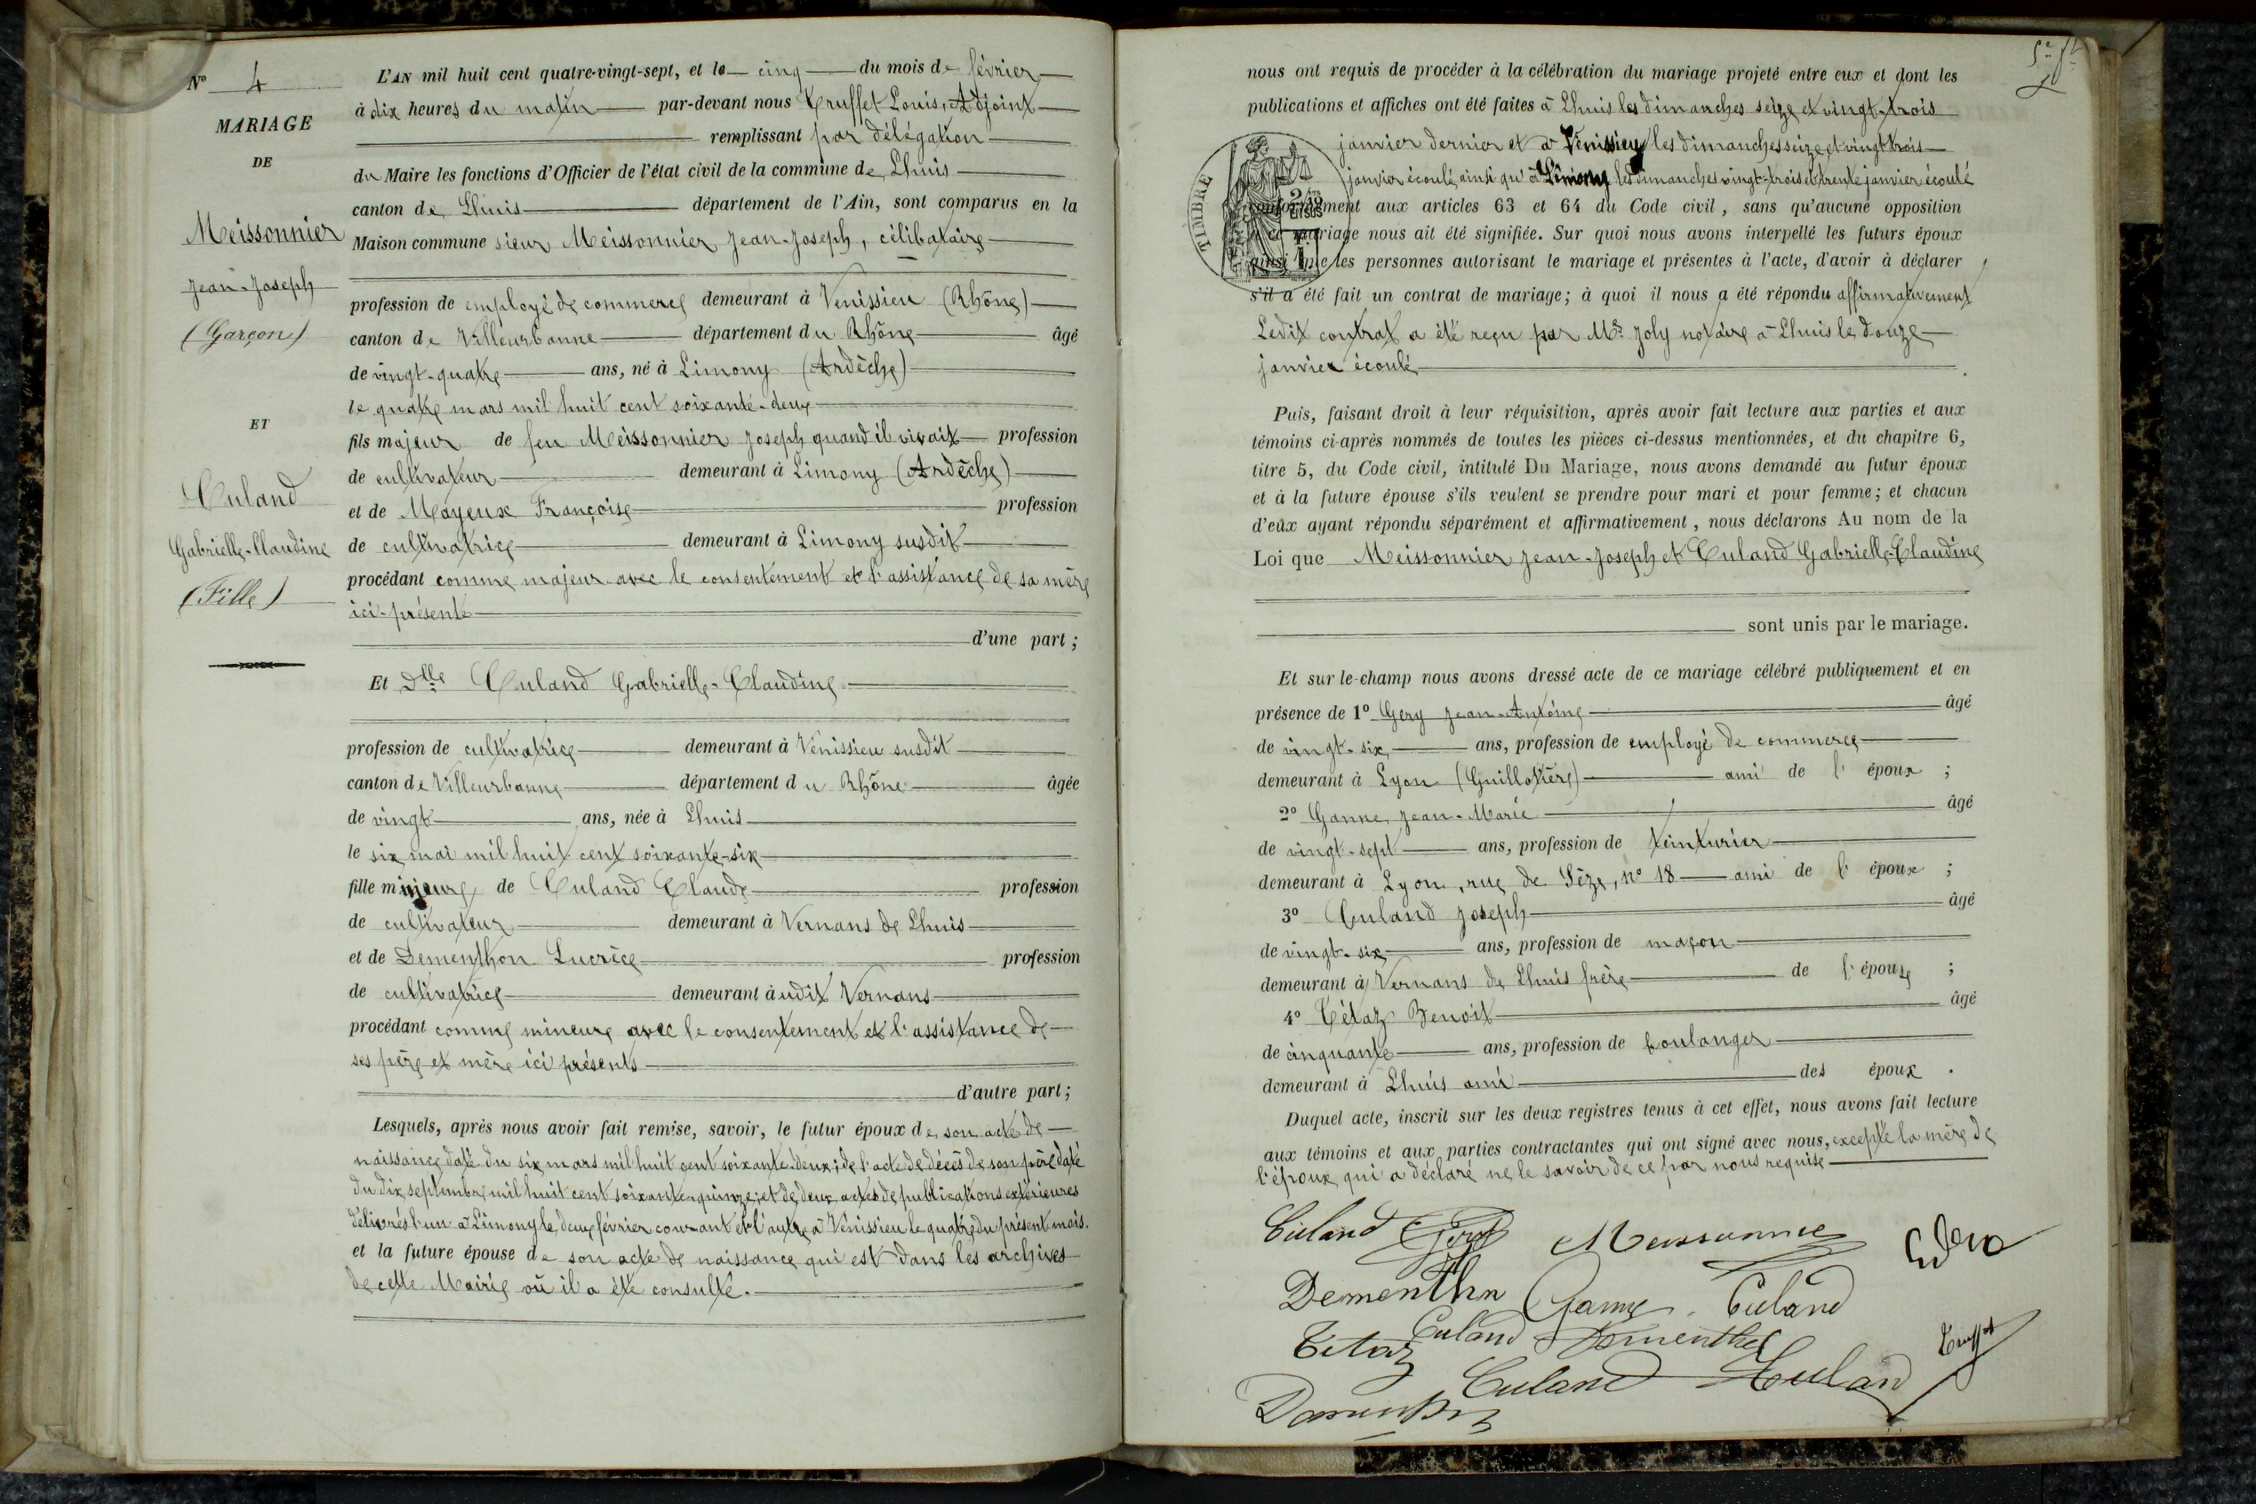 Nº 4
MARIAGE
DE
Meissonnier
Jean-Joseph
(Garçon)
ET
Culand
Gabrielle-Claudine
(Fille)
L'AN mil huit cent quatre-vingt-sept, et le cinq du mois de février
à dix heures du matin par-devant nous Truffet Louis, Adjoint
remplissant par délégation
du Maire les fonctions d'Officier de l'état civil de la commune de Lhuis
canton de Lhuis département de l'Ain, sont comparus en la
Maison commune sieur Meissonnier Jean-Joseph, célibataire
profession de employé de commerce demeurant à Venissieu (Rhône)
canton de Villeurbanne département du Rhône âgé
de vingt-quatre ans, né à Limony (Ardèche)
le quatre mars mil huit cent soixante-deux
fils majeur de feu Meissonnier Joseph quand il vivait profession
de cultivateur demeurant à Limony (Ardèche)
et de Mayeux Françoise profession
de cultivatrice demeurant à Limony susdit
procédant comme majeur avec le consentement et l'assistance de sa mère
ici-présente
d'une part ;
Et Dlle Culand Gabrielle-Claudine
profession de cultivatrice demeurant à Vénissieu susdit
canton de Villeurbanne département du Rhône âgée
de vingt ans, née à Lhuis
le six mai mil huit cent soixante-six
fille mineure de Culand Claude profession
de cultivateur demeurant à Vernans de Lhuis
et de Dementhon Lucrèce profession
de cultivatrice demeurant àudit Vernans
procédant comme mineure avec le consentement et l'assistance de
ses père et mère ici présents
d'autre part ;
Lesquels, après nous avoir fait remise, savoir, le futur époux de son acte de
naissance daté du six mars mil huit cent soixante-deux ; de l'acte de décès de son père daté
du dix septembre mil huit cent soixante-quinze ; et de deux actes de publications extérieures
délivrés l'un à Limony le deux février courant et l'autre à Vénissieu le quatre du présent mois.
et la future épouse de son acte de naissance qui est dans les archives
de cette Mairie où il a été consulté.
nous ont requis de procéder à la célébration du mariage projeté entre eux et dont les
publications et affiches ont été faites à Lhuis les dimanches seize et vingt-trois
janvier dernier et à Vénissieu les dimanches seize et vingt trois
janvier écoulé, ainsi qu'à Limony les dimanches vingt-trois et trente janvier écoulé
TIMBRE
conformément aux articles 63 et 64 du Code civil, sans qu'aucune opposition
à ce mariage nous ait été signifiée. Sur quoi nous avons interpellé les futurs époux
ainsi que les personnes autorisant le mariage et présentes à l'acte, d'avoir à déclarer
s'il a été fait un contrat de mariage ; à quoi il nous a été répondu affirmativement
Ledit contrat a été reçu par Me Joly notaire à Lhuis le douze
janvier écoulé
Puis, faisant droit à leur réquisition, après avoir fait lecture aux parties et aux
témoins ci-après nommés de toutes les pièces ci-dessus mentionnées, et du chapitre 6,
titre 5, du Code civil, intitulé Du Mariage, nous avons demandé au futur époux
et à la future épouse s'ils veulent se prendre pour mari et pour femme ; et chacun
d'eux ayant répondu séparément et affirmativement, nous déclarons Au nom de la
Loi que Meissonnier Jean-Joseph et Culand Gabrielle-Claudine
sont unis par le mariage.
Et sur-le-champ nous avons dressé acte de ce mariage célébré publiquement et en
présence de 1º Gery Jean-Antoine âgé
de vingt-six ans, profession de employé de commerce
demeurant à Lyon (Guillotière) ami de l'époux ;
2º Ganne, Jean-Marie âgé
de vingt-sept ans, profession de teinturier
demeurant à Lyon, rue de Sèze, nº 18 ami de l'époux ;
3º Culand Joseph âgé
de vingt-six ans, profession de maçon
demeurant à Vernans de Lhuis frère de l'épouse ;
4º Tétaz Benoit âgé
de cinquante ans, profession de boulanger
demeurant à Lhuis ami des époux.
Duquel acte, inscrit sur les deux registres tenus à cet effet, nous avons fait lecture
aux témoins et aux parties contractantes qui ont signé avec nous, excepté la mère de
l'époux qui a déclaré ne le savoir de ce par nous requise
Culand Gery Meissonnier
Dementhn Ganne Culand
Tetaz Culand Dementhon Truffet
Culand Culand